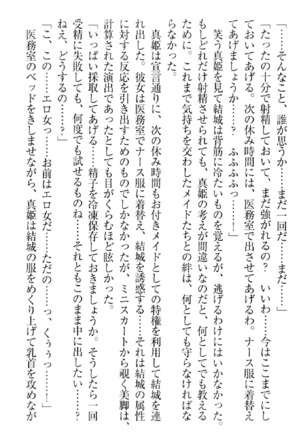 「……そんなこと、誰が思うか……まだ一回だ……まだ……」
「たったの十分で射精しておいて、まだ強がれるの？　いいわ……今はここまでにし
ておいてあげる。次の休み時間には、医務室で出させてあげるわ。ナース服に着替え
てあげましょうか？　ふふふふっ……」
　笑う真姫を見て結城は背筋に冷たいものを覚えるが、逃げるわけにはいかなかった。
もしどれだけ射精させられても、真姫の考えが間違いなのだと、何としてでも教える
ために。これまで気持ちを交わしたメイドたちとの絆は、何としても守らなければな
らない。
　真姫は宣言通りに、次の休み時間もお付きメイドとしての特権を利用して結城を連
れ出した。彼女は医務室でナース服に着替え、結城を誘惑する――それは結城の属性
に対する反応を引き出すためのものでしかなかったが、ミニスカートから覗く美脚は、
計算された演出であったとしても目がくらむほど眩しかった。
「いっぱい採取してあげる……精子を冷凍保存しておきましょうか。そうしたら一回
受精に失敗しても、何度でも試せるものね……それともこのまま中に出したい……？
ねえ、どうするの……？」
「こ、この……エロ女っ……お前はエロ女だ……ただの……っ、くぅぅっ……！」
　医務室のベッドをきしませながら、真姫は結城の服をめくり上げて乳首を攻めなが